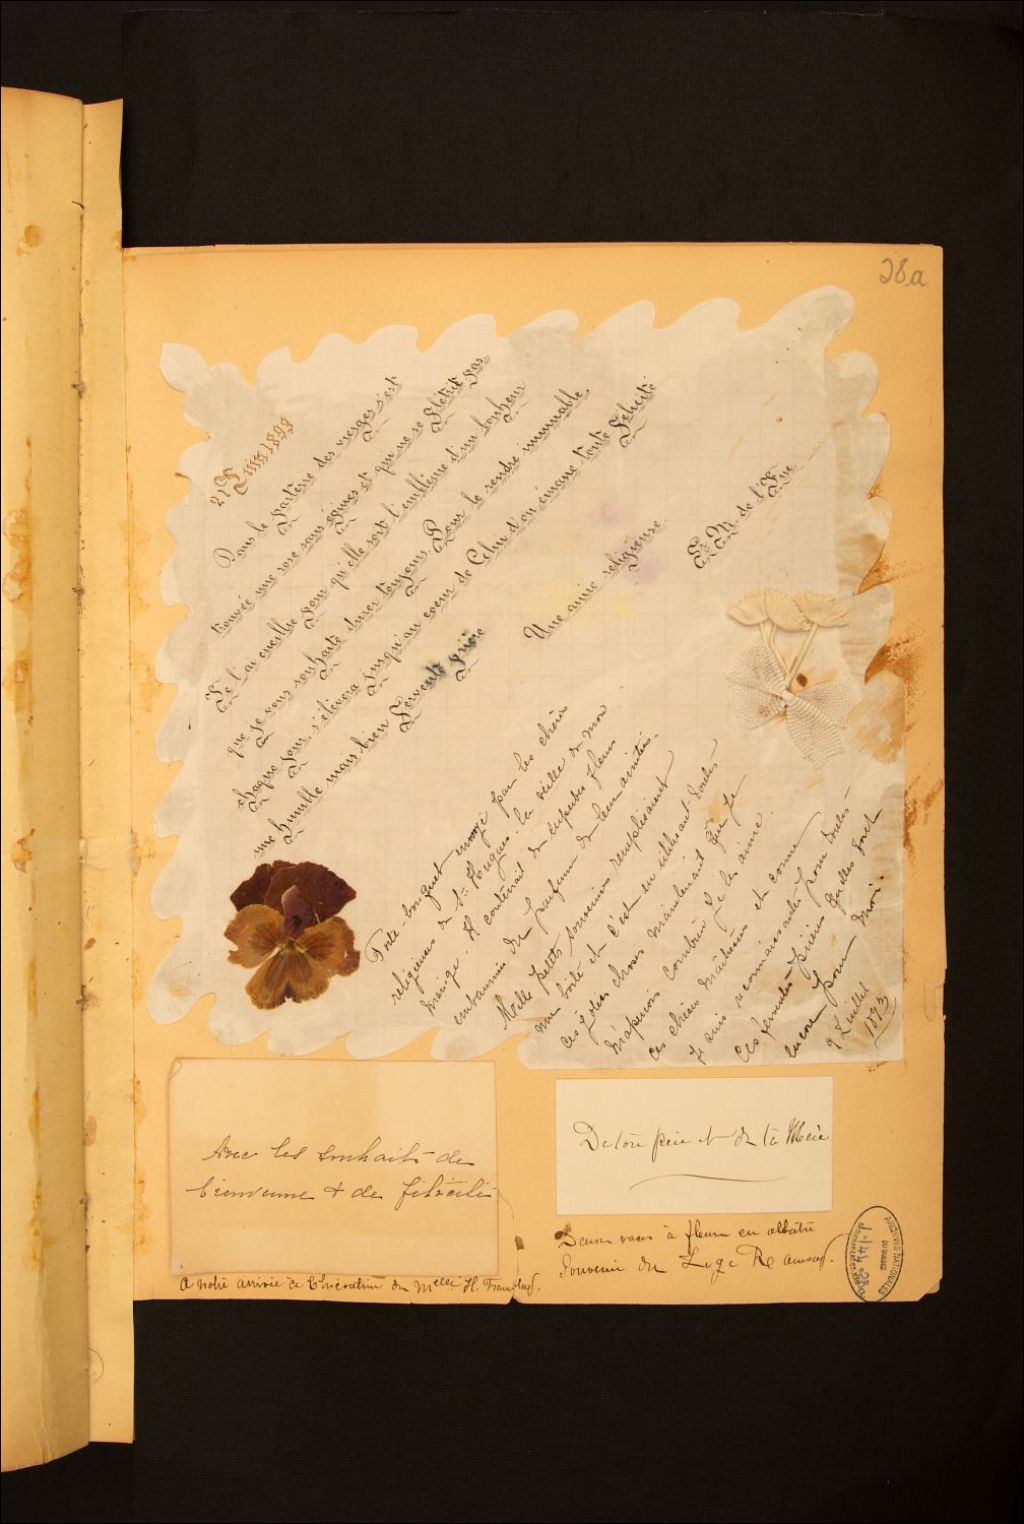 28a
21 Juin 1893
Dans le Parterre des vierges s'est
trouvée une rose sans épines et qui ne se flétrit pas
Je l'ai cueillie pour qu'elle soit l'emblème d'un bonheur
que je vous souhaite durer toujours. Pour le rendre immuable,
chaque jour, s'élèvera jusqu'au coeur de Celui d'où émane toute félicité
une humble mais bien fervente prière
Une amie religieuse
Sr M. de l'
Porte-bouquet envoyé par les chères
religieuses de St- la veille de mon
mariage. Il contenait de superbes fleurs
embaumées du parfum de leur amitié.
Mille petits souvenirs remplissaient
une boîte et c'est en utilisant toutes
ces jolies choses maintenant que je
m'aperçois combien je les aime.
ces chères maîtresses et comme
je suis reconnaissante pour toutes
les ferventes prières qu'elles font
encore pour moi.
9 Juillet
1893
Avec les souhaits de
bienvenue & de félicité
A notre arrivée à Chicoutimi de Melle H. Tremblay.
De ton père et de ta Mère
Deux vases à fleurs en albâtre
Souvenir du Juge
ARCHIVES NATIONALES